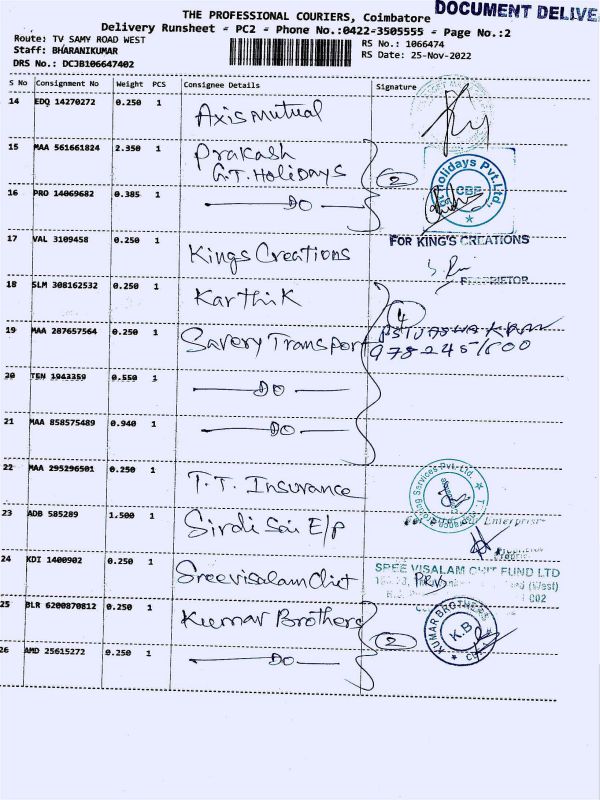 THE PROFESSIONAL COURIERS, Coimbatore
DOCUMENT DELIVE
Delivery Runsheet - PC2 - Phone No.:0422-3505555 - Page No.:2
Route: TV SAMY ROAD WEST
RS No.: 1066474
Staff: BHARANIKUMAR
RS Date: 25-Nov-2022
DRS No.: DCJB106647402
S No Consignment No Weight PCS Consignee Details Signature
14 EDQ 14270272 0.250 1 Axis mutual
15 MAA 561661824 2.350 1 Prakash
G.T. Holidays
2
Holidays Pvt.Ltd.
CBE
16 PRO 14069682 0.385 1 DO
17 VAL 3109458 0.250 1 Kings Creations
FOR KING'S CREATIONS
PROPRIETOR
18 SLM 308162532 0.250 1 Karthik
4
19 MAA 287657564 0.250 1 Savery Transport
9782451600
20 TEN 1943359 0.550 1 DO
21 MAA 858575489 0.940 1 DO
22 MAA 295296501 0.250 1 T.T. Insurance
Services Pvt. Ltd.
23 ADB 585289 1.500 1 Sirdi Sai E/p
For Enterpris
24 KDI 1400902 0.250 1 Sreevisalam Chit
SREE VISALAM CHIT FUND LTD
(West)
002
25 BLR 6200870812 0.250 1 Kumar Brothers
KUMAR BROTHERS
K.B
2
26 AMD 25615272 0.250 1 DO